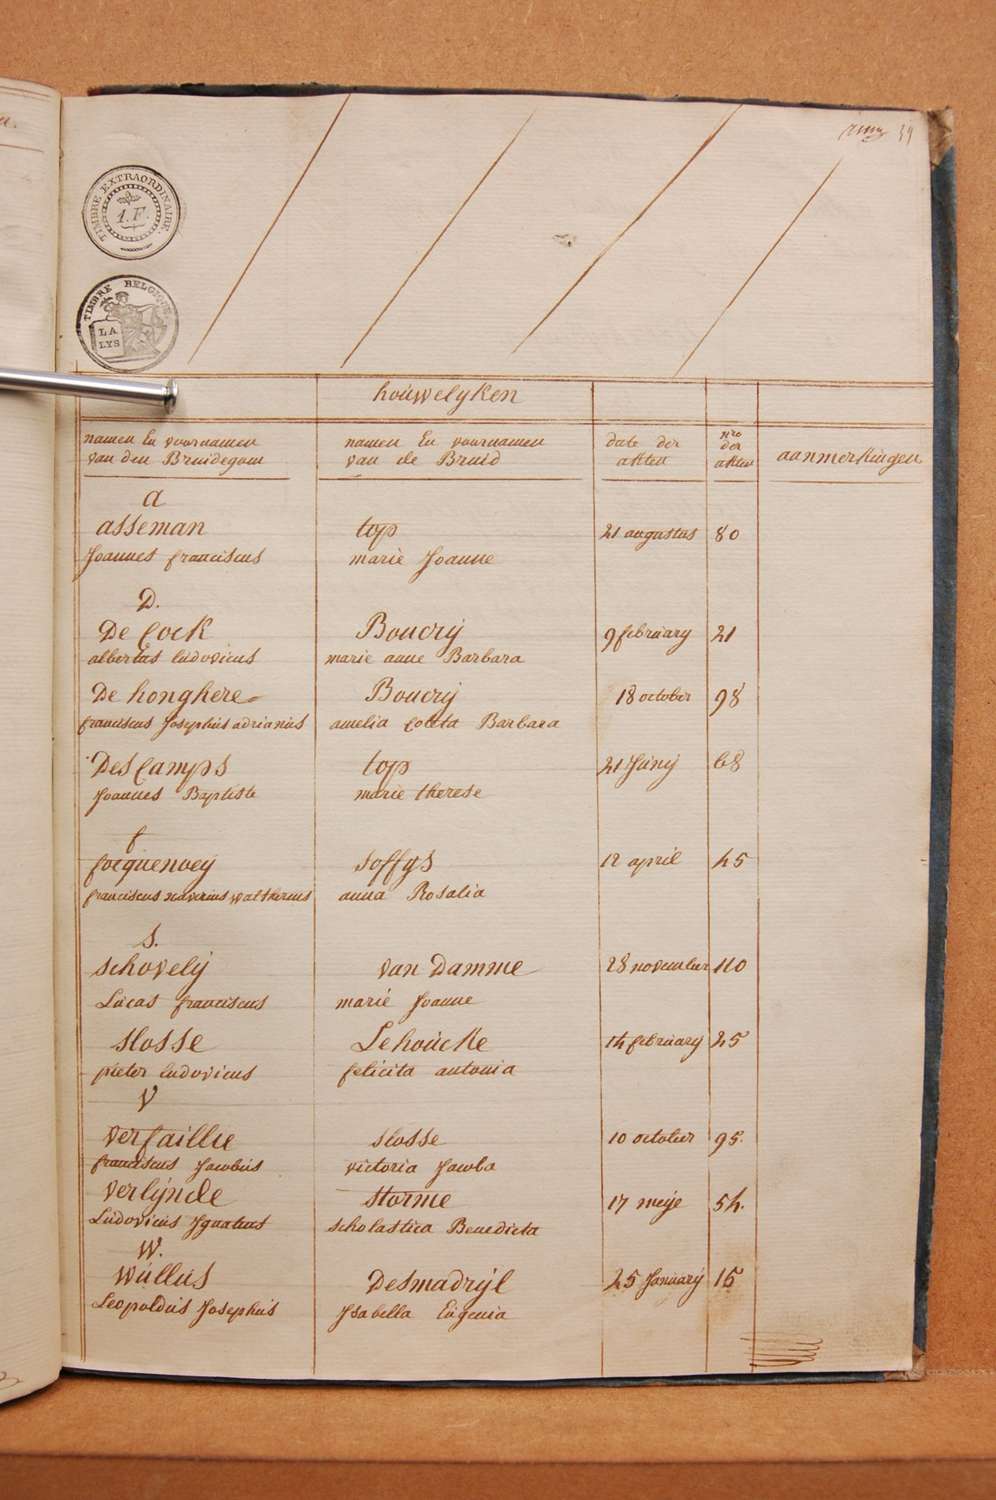 39
TIMBRE EXTRAORDINAIRE.
1. F.
TIMBRE BELGIQUE
LA LYS
houwelyken
namen En voornamen van den Bruidegom
namen En voornamen van de Bruid
date der akten
nro der akten
aanmerkingen
a
asseman top 21 augustus 80
Joannes franciscus marie Joanne
D.
De Cock Boucrij 9 february 21
albertus ludovicus marie anne Barbara
De honghere Boucrij 18 october 98
franciscus Josephus adrianus amelia Coleta Barbara
DesCamps top 21 Junij 68
Joannes Baptiste marie therese
f
focquenoey soffys 12 april 45
franciscus xaverius waltherus anna Rosalia
S.
schovelij van Damme 28 november 110
Lucas franciscus marie Joanne
slosse Lehoucke 14 february 25
pieter ludovicus felicita antonia
V
verfaillie slosse 10 october 95.
franciscus Jacobus victoria Jacoba
verlynde storme 17 meije 54.
Ludovicus Ignatius scholastica Benedicta
W.
wullus Desmadryl 25 January 15
Leopoldus Josephus Isabella Eugenia